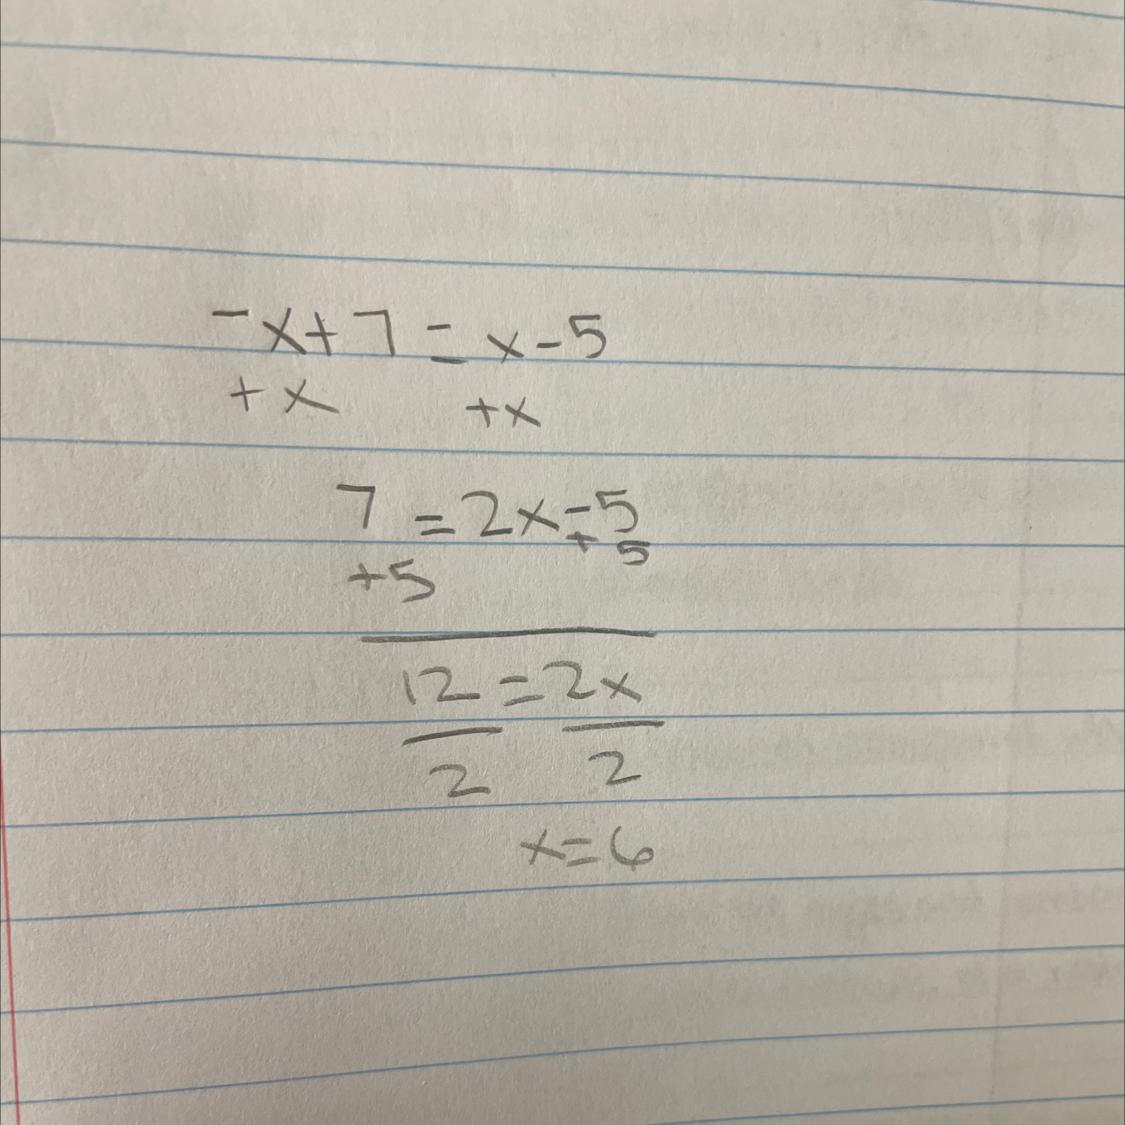 -x+7=x-5
+x +x
7=2x-5
+5 +5
12=2x
2 2
x=6